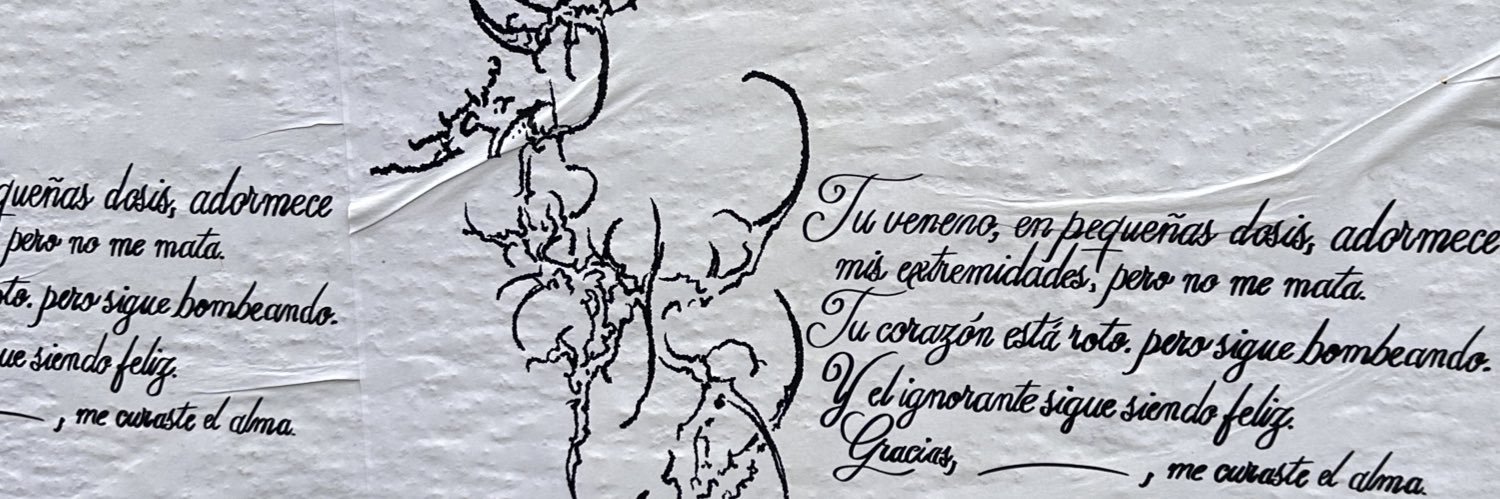 queñas dosis, adormece
pero no me mata.
oto. pero sigue bombeando.
ue siendo feliz.
, me curaste el alma.
Tu veneno, en pequeñas dosis, adormece
mis extremidades, pero no me mata.
Tu corazón está roto. pero sigue bombeando.
Y el ignorante sigue siendo feliz.
Gracias, ____, me curaste el alma.